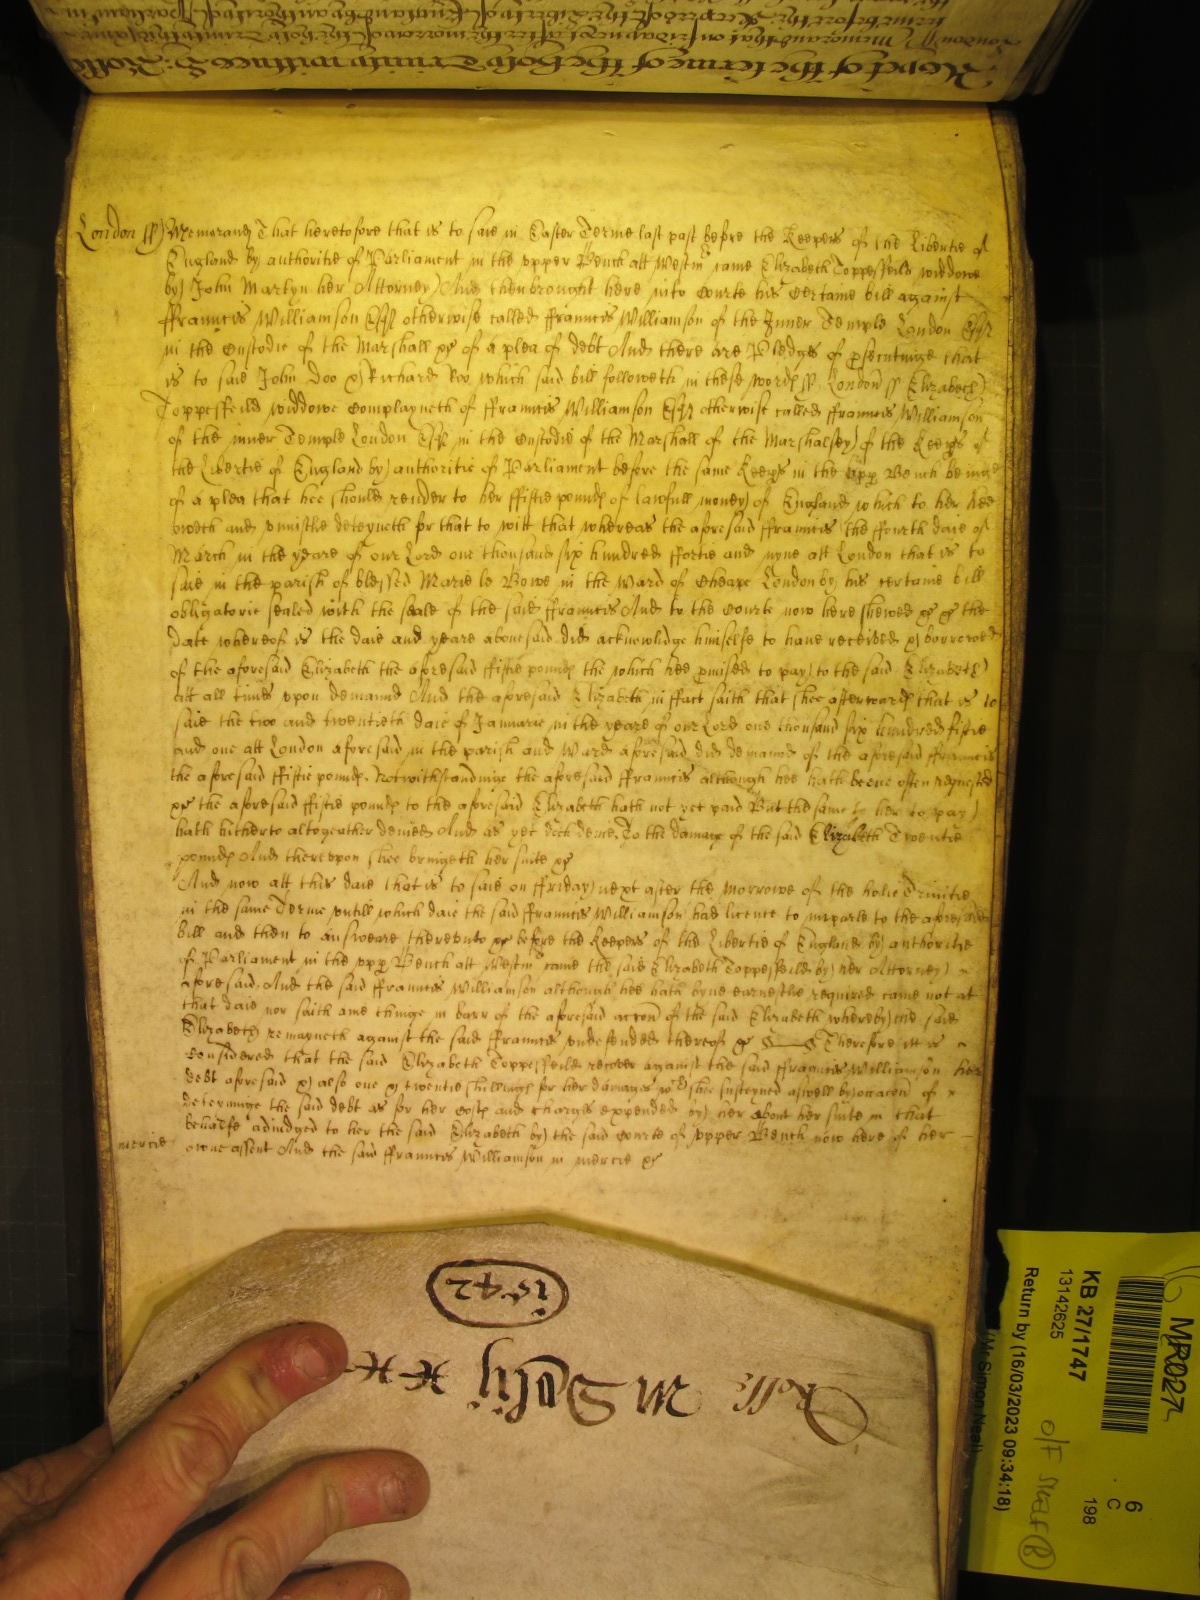 London ss) Memorand That heretofore that is to saie in Easter Terme last past before the Keepers of the Libertie of
England by authoritie of Parliament in the vpper Bench att Westm came Elizabeth Toppesfeild widdowe
by John Martyn her Attorney And then brought here into Courte his Certaine bill against
ffrauncis Williamson Esqr otherwise called ffrauncis Williamson of the Inner Temple London Esqr
in the Custodie of the Marshall &c of a plea of debt And there are Pledges of prosecutinge that
is to saie John Doo & Richard Roo which said bill followeth in these words ss. London ss Elizabeth
Toppesfeild widdowe Complayneth of ffrauncis Williamson Esqr otherwise called ffrauncis Williamson
of the inner Temple London Esqr in the Custodie of the Marshall of the Marshalsey of the Keeps of
the Libertie of England by authoritie of Parliament before the same Keeps in the vpp Bench beinge
of a plea that hee should render to her ffiftie pounds of lawfull money of England which to her hee
oweth and vniustlie deteyneth for that to witt that whereas the aforesaid ffrauncis the ffourth daie of
March in the yeare of our Lord one thousand six hundred ffortie and nyne att London that is to
saie in the parish of blessed Marie le Bowe in the Ward of Cheape London by his certaine bill
obligatorie sealed with the seale of the said ffrauncis And to the Courte now here shewed &c the
date whereof is the daie and yeare abovesaid did acknowlidge himselfe to have received & borrowed
of the aforesaid Elizabeth the aforesaid ffiftie pounds the which hee pmised to pay to the said Elizabeth
att all times vpon demaund And the aforesaid Elizabeth in ffact saith that shee afterwards that is to
saie the two and twentieth daie of Januarie in the yeare of our Lord one thousand six hundred fiftie
and one att London aforesaid in the parish and Ward aforesaid did demaund of the aforesaid ffrauncis
the aforesaid ffiftie pounds. Notwithstandinge the aforesaid ffrauncis although hee hath beene often requested
&c the aforesaid ffiftie pounds to the aforesaid Elizabeth hath not yet paid But the same to her to pay
hath hitherto altogeather denied And as yet doth denie. To the damage of the said Elizabeth Twentie
pounds And therevpon shee bringeth her suite &c
And now att this daie that is to saie on ffriday next after the Morrowe of the holie Trinitie
in the same Terme vntill which daie the said ffrauncis Williamson had licence to imparle to the aforesaid
bill and then to answeare therevnto &c before the Keepers of the Libertie of England by authoritie
of Parliament in the vpp Bench att Westm came the said Elizabeth Toppesfeild by her Attorney
aforesaid And the said ffrauncis Williamson although hee hath byne earnestlie required came not at
that daie nor saith anie thinge in barr of the aforesaid accon of the said Elizabeth whereby the said
Elizabeth remayneth against the said ffrauncis vndefended thereof &c Therefore itt is
Considered that the said Elizabeth Toppesfeild recover against the said ffrauncis Williamson her
debt aforesaid & also one & twentie shillings for her damages wch shee susteyned aswell by occacon of
deteyninge the said debt as for her Costs and charges expended by her about her suite in that
behalfe adiudged to her the said Elizabeth by the said Courte of vpper Bench now here of her
mercie owne assent And the said ffrauncis Williamson in mercie &c
1642
Rolle M Sol
KB 27/1747
13142625
Return by (16/03/2023 09:34:18)
(Mr Simon Neal)
MR027
6
C
198
O/F SHELF B